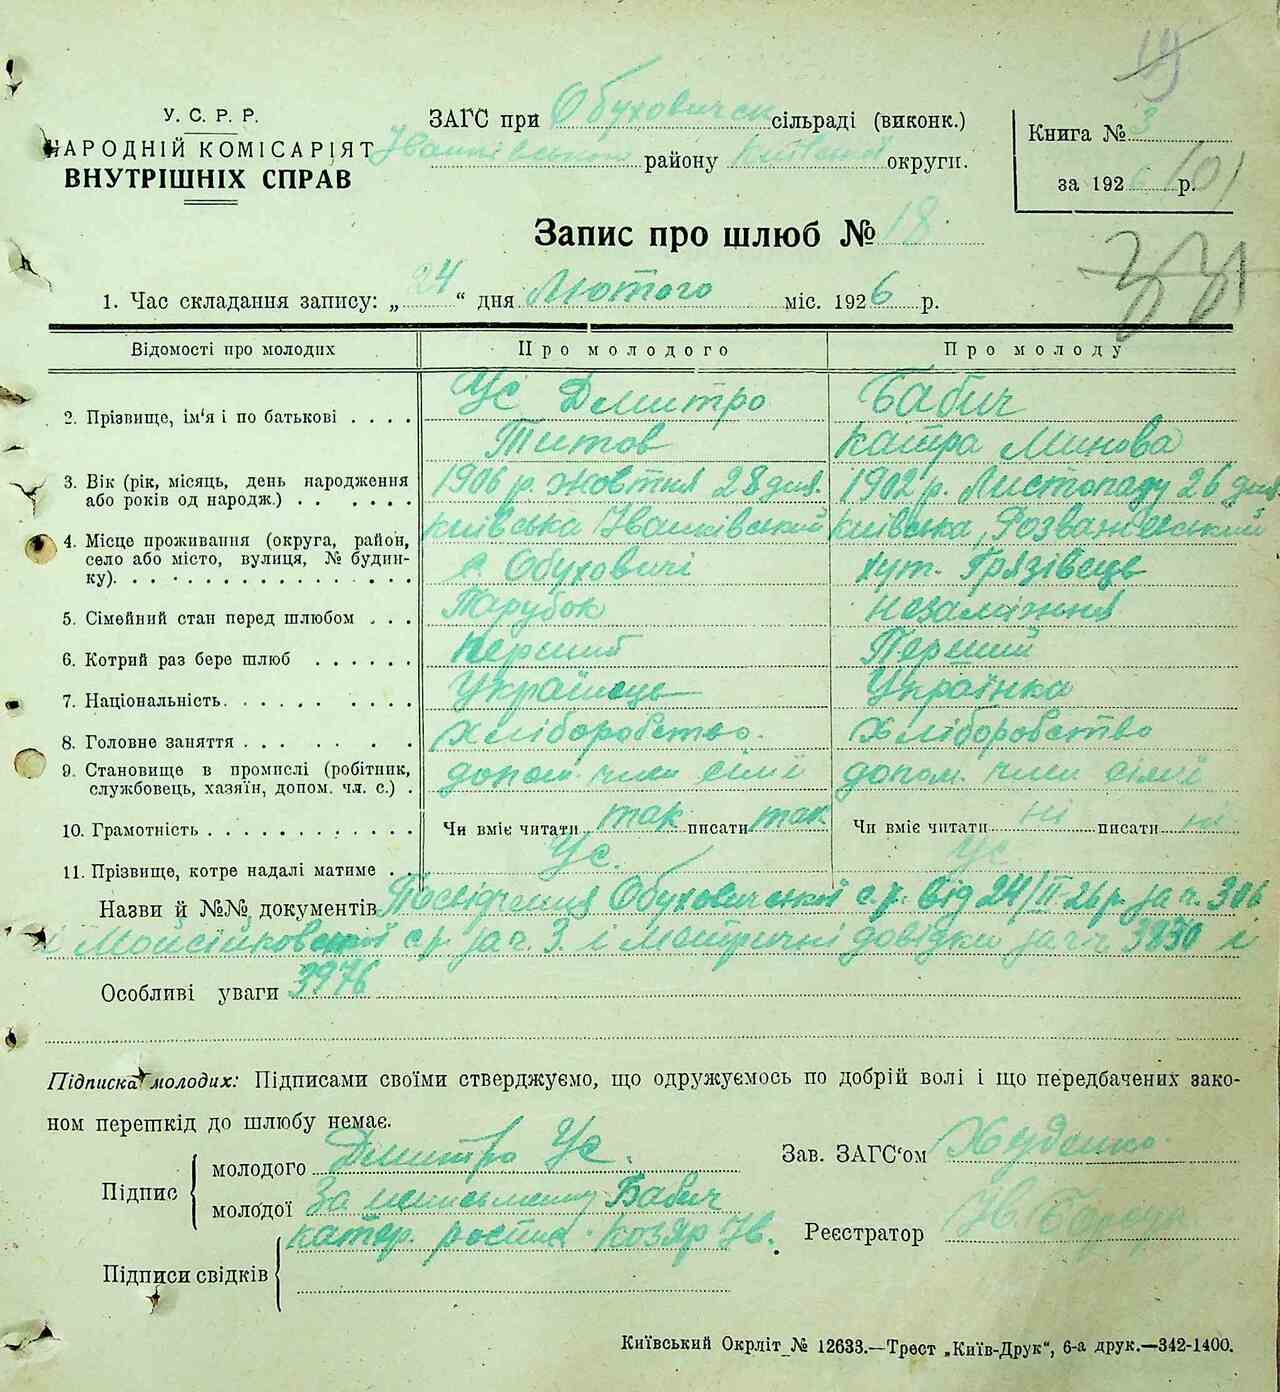 19
У. С. Р. Р.
НАРОДНІЙ КОМІСАРІЯТ
ВНУТРІШНІХ СПРАВ
ЗАГС при Обуховичск сільраді (виконк.)
Іванківського району Київської округи.
Книга № 3
за 1926 р.
101
Запис про шлюб № 18
1. Час складання запису: „24“ дня Лютого міс. 1926 р.
Відомості про молодих Про молодого Про молоду
2. Прізвище, ім'я і по батькові . . . . Ус Дмитро Бабич
Титов Катря Минова
3. Вік (рік, місяць, день народження 1906 р. жовтня 28 дня. 1902 р. Листопаду 26 дня
або років од народж.)
4. Місце проживання (округа, район, Київська Іванківський Київська, Розважевський
село або місто, вулиця, № будин- с. Обуховичі хут. Грязівець
ку)
5. Сімейний стан перед шлюбом . . . Парубок незаміжня
6. Котрий раз бере шлюб . . . . . . Перший Перший
7. Національність Українець Українка
8. Головне заняття Хліборобство. Хліборобство
9. Становище в промислі (робітник, допом. член сімї допом. член сімї
службовець, хазяїн, допом. чл. с.) .
10. Грамотність Чи вміє читати так писати так Чи вміє читати ні писати ні
11. Прізвище, котре надалі матиме . . Ус. Ус
Назви й №№ документів Посвідчення Обуховичської с.р. від 24/II-26 р. за ч. 306
і Мойсійковської с.р. за ч. 3. і метричні довідки за ч.ч. 3830 і
Особливі уваги 3976
Підписка молодих: Підписами своїми стверджуємо, що одружуємось по добрій волі і що передбачених зако-
ном перешкід до шлюбу немає.
Підпис молодого Дмитро Ус. Зав. ЗАГС'ом
молодої За неписьменну Бабич
Катер. роспис. Козяр Ів. Реєстратор
Підписи свідків
Київський Окрліт № 12633.—Трест „Київ-Друк“, 6-а друк.—342-1400.